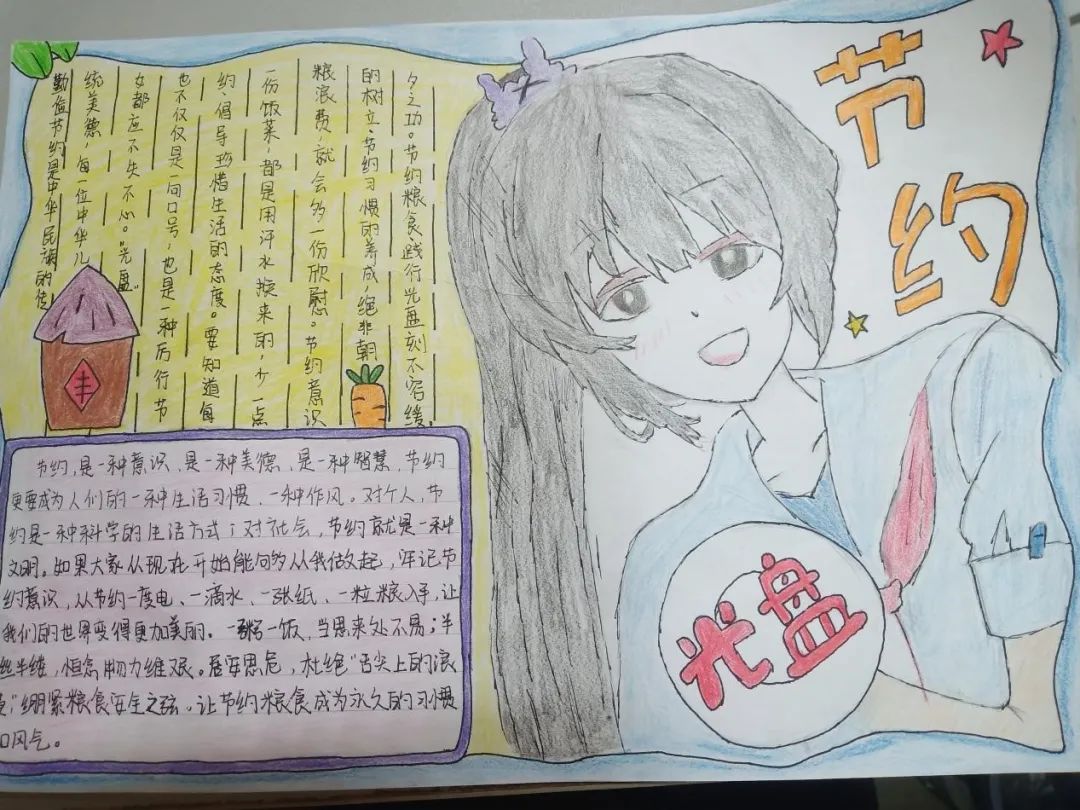 节约
勤俭节约是中华民族的传
统美德,每一位中华儿
女都应不失不心。“光盘”
也不仅仅是一句口号,也是一种厉行节
约倡导珍惜生活的态度。要知道每
一份饭菜,都是用汗水换来的,少一点
粮浪费,就会多一份欣慰。节约意识
的树立、节约习惯的养成,绝非朝
夕之功。节约粮食践行光盘刻不容缓。
丰
光盘
节约,是一种意识、是一种美德、是一种智慧,节约
更要成为人们的一种生活习惯、一种作风。对个人,节
约是一种科学的生活方式;对社会,节约就是一种
文明。如果大家从现在开始能够从我做起,牢记节
约意识,从节约一度电、一滴水、一张纸、一粒粮入手,让
我们的世界变得更加美丽。一粥一饭,当思来处不易;半
丝半缕,恒念物力维艰。居安思危,杜绝“舌尖上的浪
费”绷紧粮食安全之弦。让节约粮食成为永久的习惯
和风气。